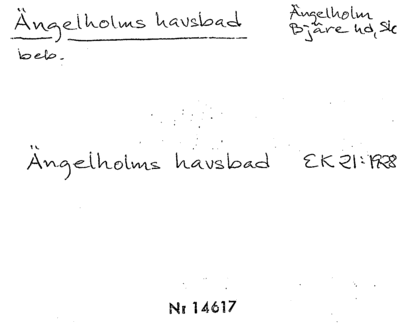 Ängelholms havsbad
Ängelholm
Bjäre hd, Sk
beb.
Ängelholms havsbad EK 21:1928
Nr 14617